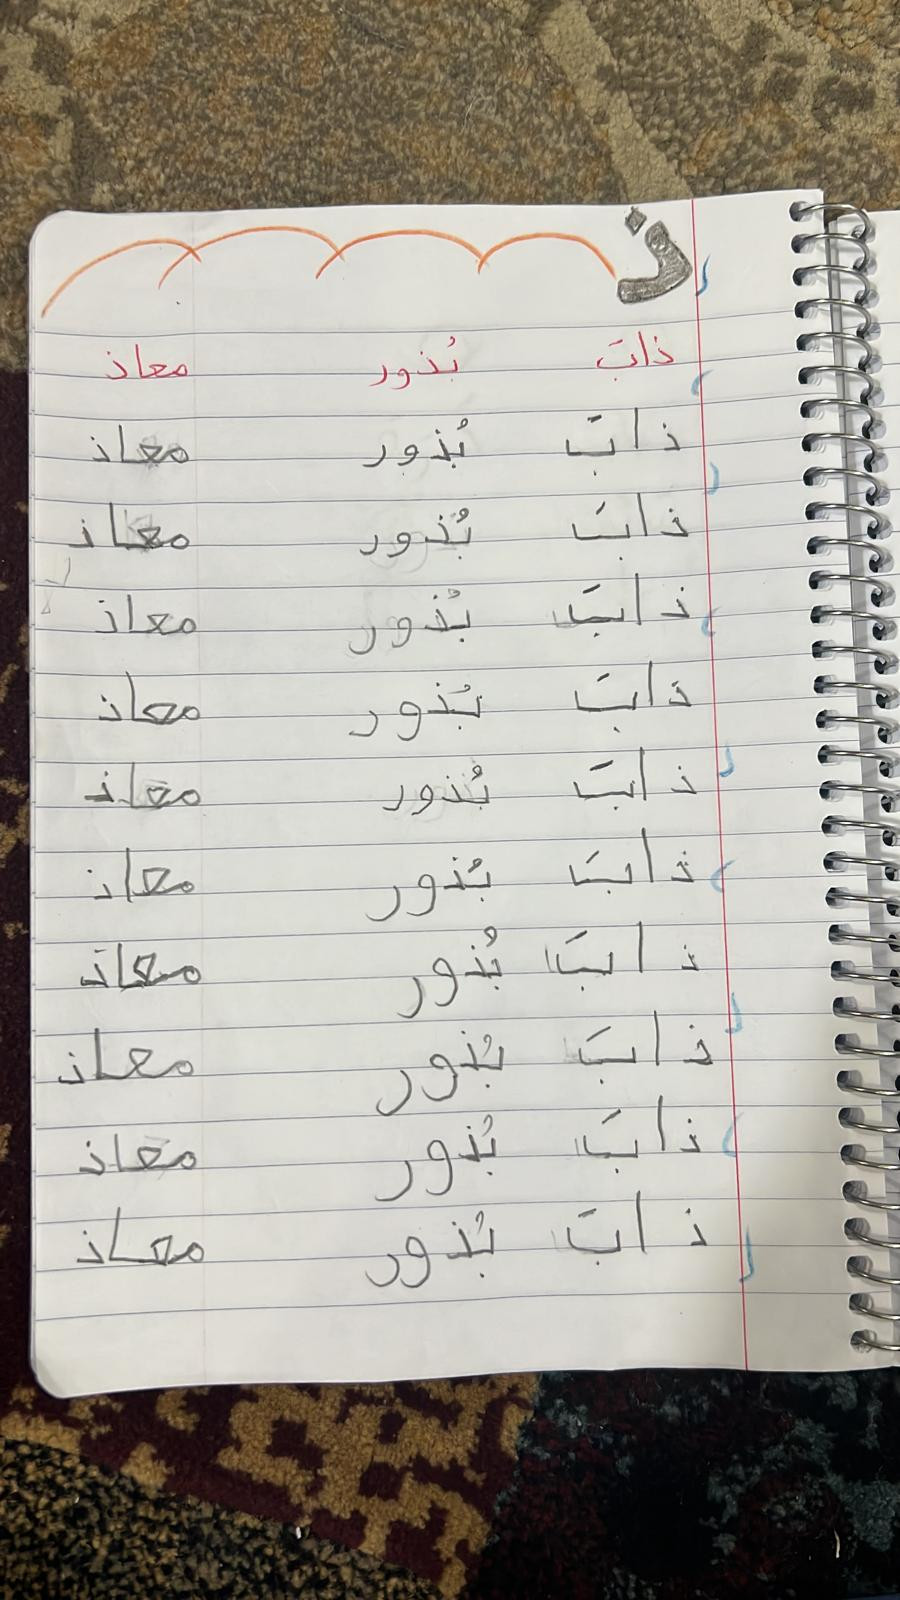 ذ
ذابَ بُذور معاذ
ذابَ بُذور معاذ
ذابَ بُذور معاذ
ذابَ بُذور معاذ
ذابَ بُذور معاذ
ذابَ بُذور معاذ
ذابَ بُذور معاذ
ذابَ بُذور معاذ
ذابَ بُذور معاذ
ذابَ بُذور معاذ
ذابَ بُذور معاذ